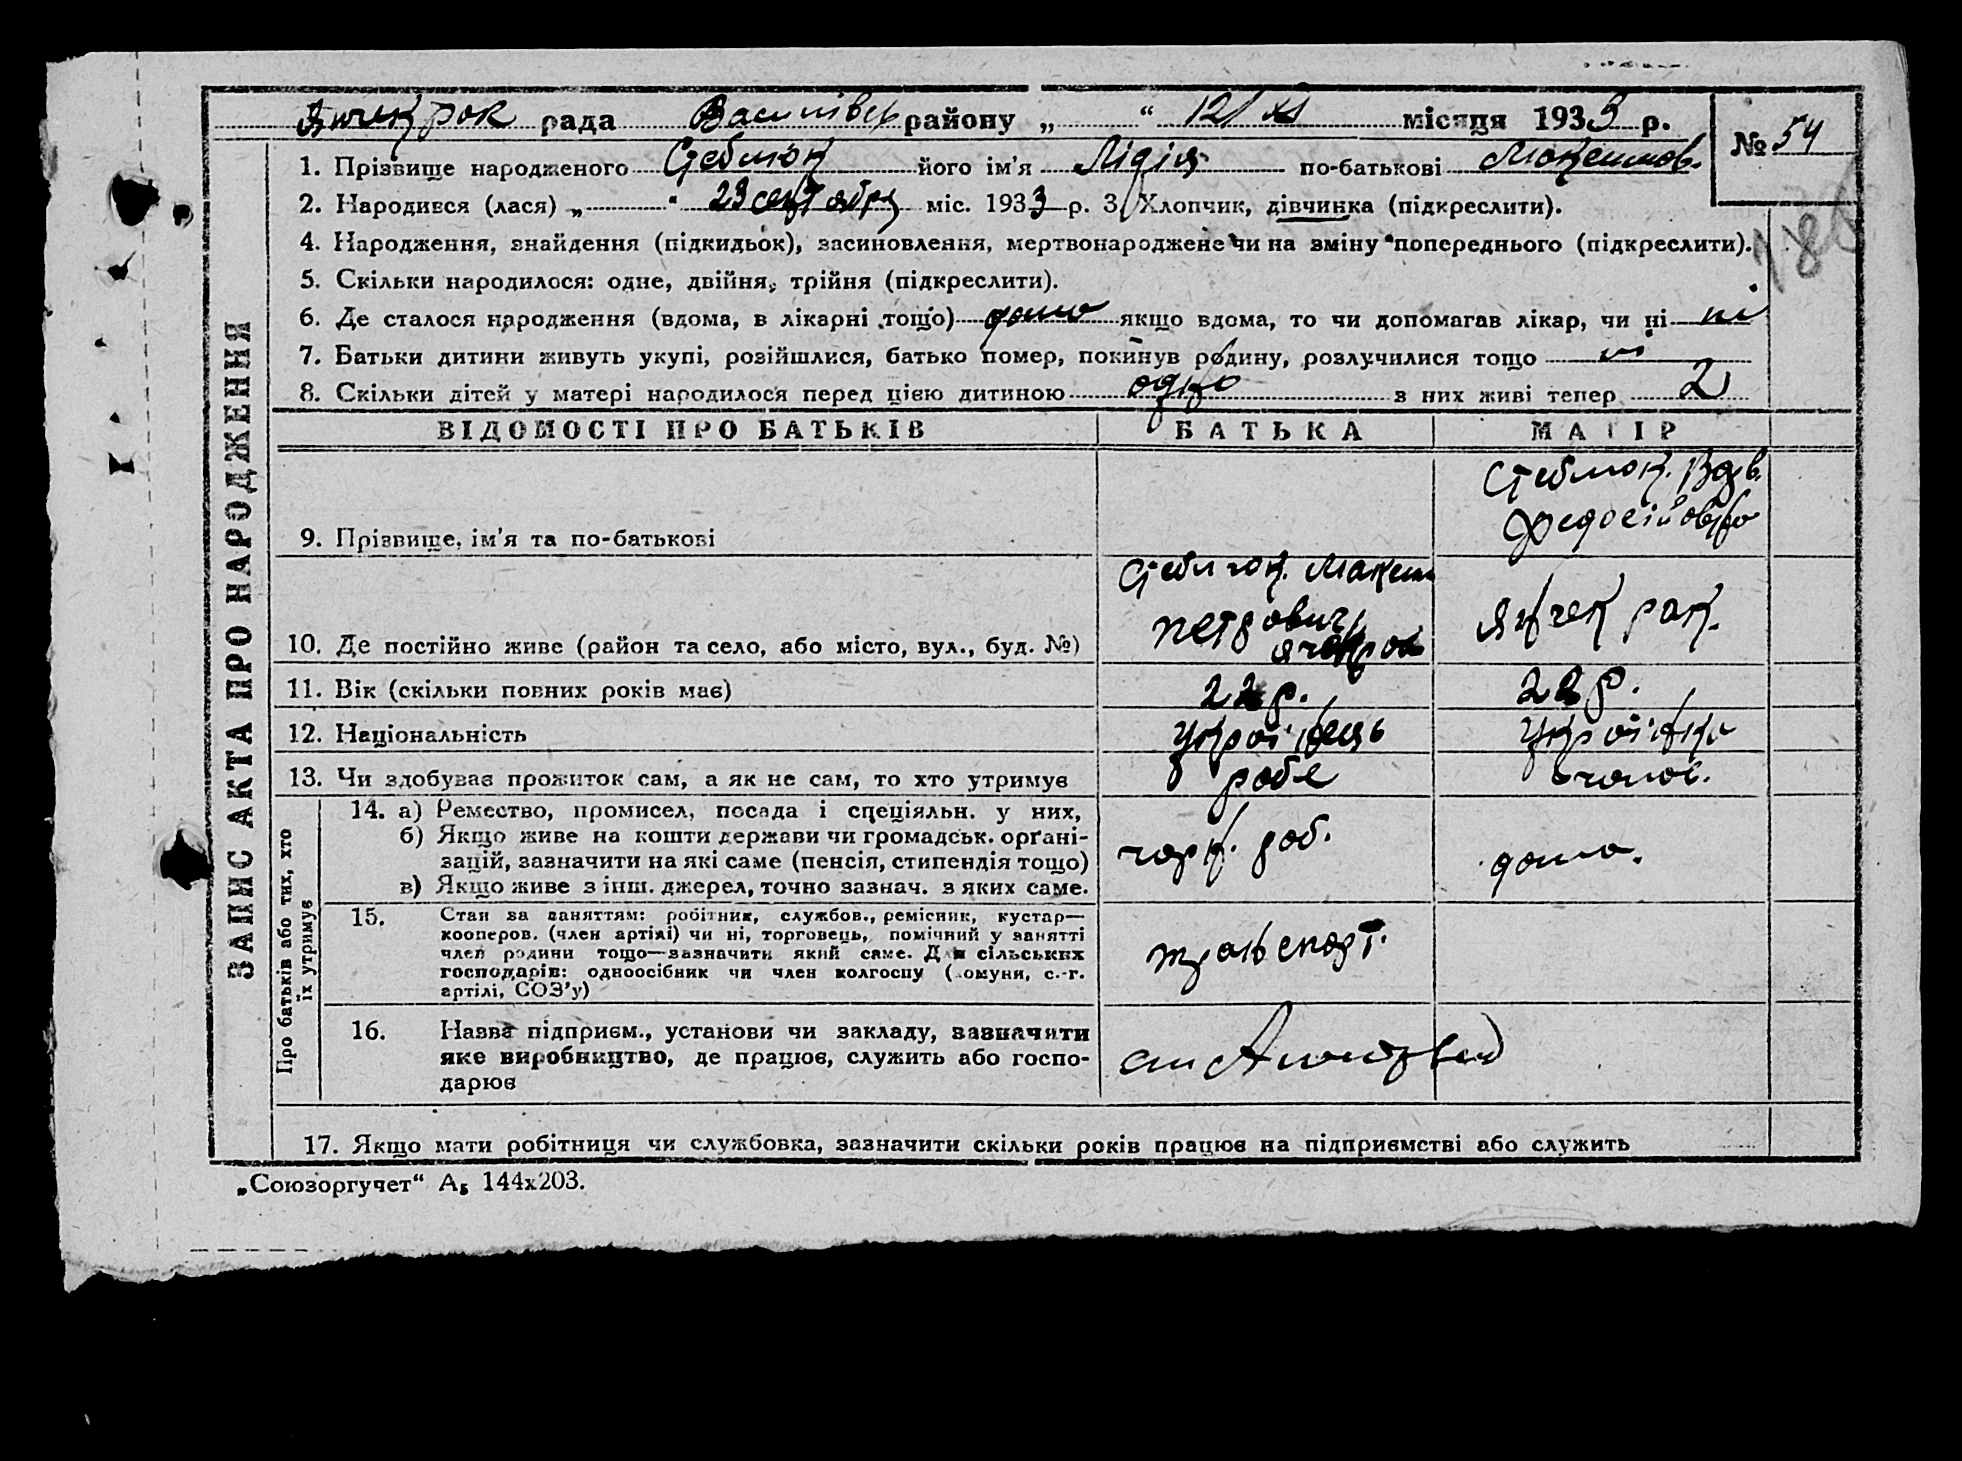 Янчекрок рада Василівск району „ “ 12/XI місяця 1933 р.
№ 54
1. Прізвище народженого Стеблюк його ім'я Лідія по-батькові Максимов.
2. Народився (лася) „ “ 23 сентября міс. 1933 р. 3. Хлопчик, дівчинка (підкреслити).
4. Народження, знайдення (підкидьок), засиновлення, мертвонароджене чи на зміну попереднього (підкреслити).
5. Скільки народилося: одне, двійня, трійня (підкреслити).
6. Де сталося народження (вдома, в лікарні тощо) дома якщо вдома, то чи допомагав лікар, чи ні ні
7. Батьки дитини живуть укупі, розійшлися, батько помер, покинув родину, розлучилися тощо
8. Скільки дітей у матері народилося перед цією дитиною одно з них живі тепер 2
ЗАПИС АКТА ПРО НАРОДЖЕННЯ
ВІДОМОСТІ ПРО БАТЬКІВ БАТЬКА МАТІР
Стеблюк.
Федосіївна
9. Прізвище, ім'я та по-батькові
Стеблюк. Максим
Петрович
Янчекрак.
10. Де постійно живе (район та село, або місто, вул., буд. №)
11. Вік (скільки повних років має) 22 р. 22 р.
12. Національність Українець Українка
13. Чи здобуває прожиток сам, а як не сам, то хто утримує робе чолов.
Про батьків або тих, хто
їх утримує
14. а) Ремество, промисел, посада і спеціяльн. у них,
б) Якщо живе на кошти держави чи громадськ. органі-
зацій, зазначити на які саме (пенсія, стипендія тощо)
в) Якщо живе з інш. джерел, точно зазнач. з яких саме.
чорн. роб. дома.
15. Стан за заняттям: робітник, службов., ремісник, кустар—
кооперов. (член артілі) чи ні, торговець, помічний у занятті
член родини тощо—зазначити який саме. Для сільських
господарів: одноосібник чи член колгоспу (комуни, с.-г.
артілі, СОЗ'у)
транспорт.
16. Назва підприєм., установи чи закладу, зазначити
яке виробництво, де працює, служить або госпо-
дарює
17. Якщо мати робітниця чи службовка, зазначити скільки років працює на підприємстві або служить
„Союзоргучет“ А5 144х203.